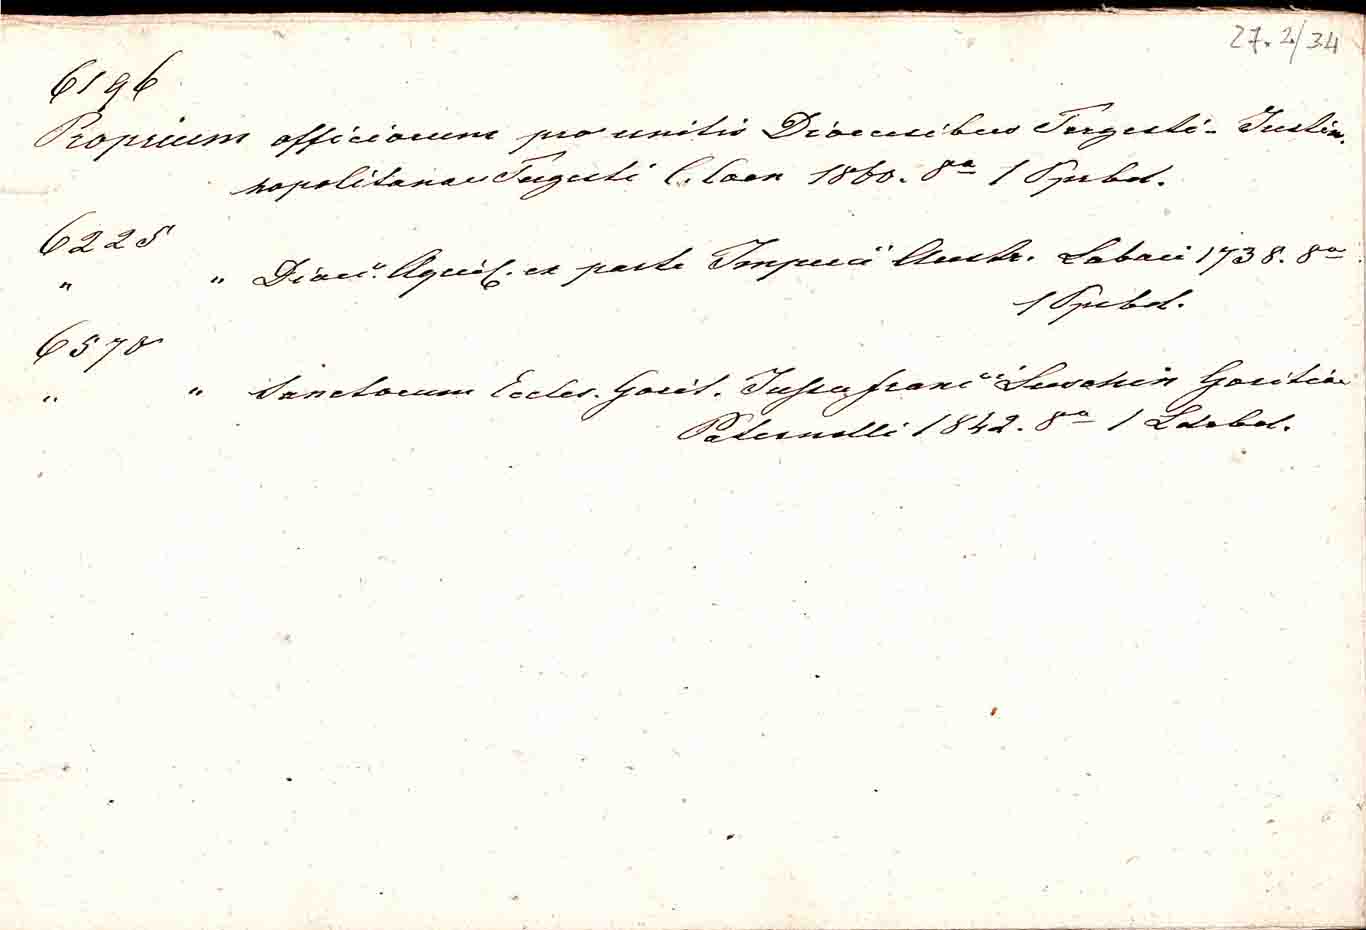 27.2/34
6196
Proprium officiorum pro unitis Dioecesibus Tergesti- Justin.
nopolitanae Tergesti C. Coen 1860. 8° 1 Pprbd.
6225
" " Dioec. Aquil. ex parte Imperii Austr. Labaci 1738. 8°
1 Pprbd.
6570
" " Sanctorum Eccles. Gorit. Jussu Franc Luschin Goritiae
Paternolli 1842. 8° 1 Ldrbd.